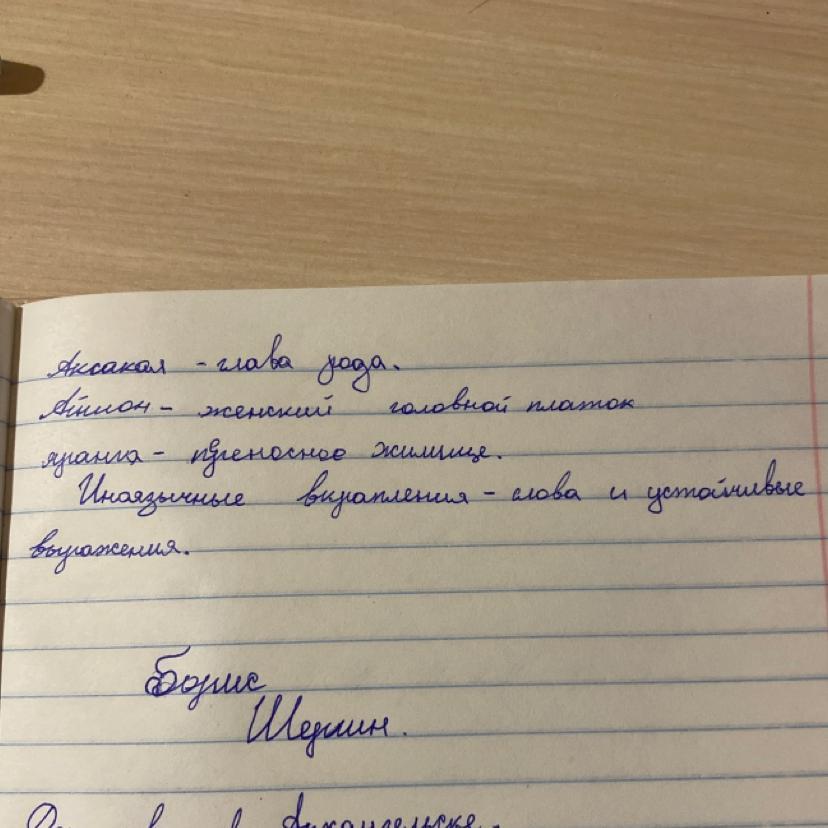 Аксакал - глава рода.
женский головной платок
яранга - переносное жилище.
Иноязычные вкрапления - слова и устойчивые
выражения.
Борис
Шергин.
в Архангельске.